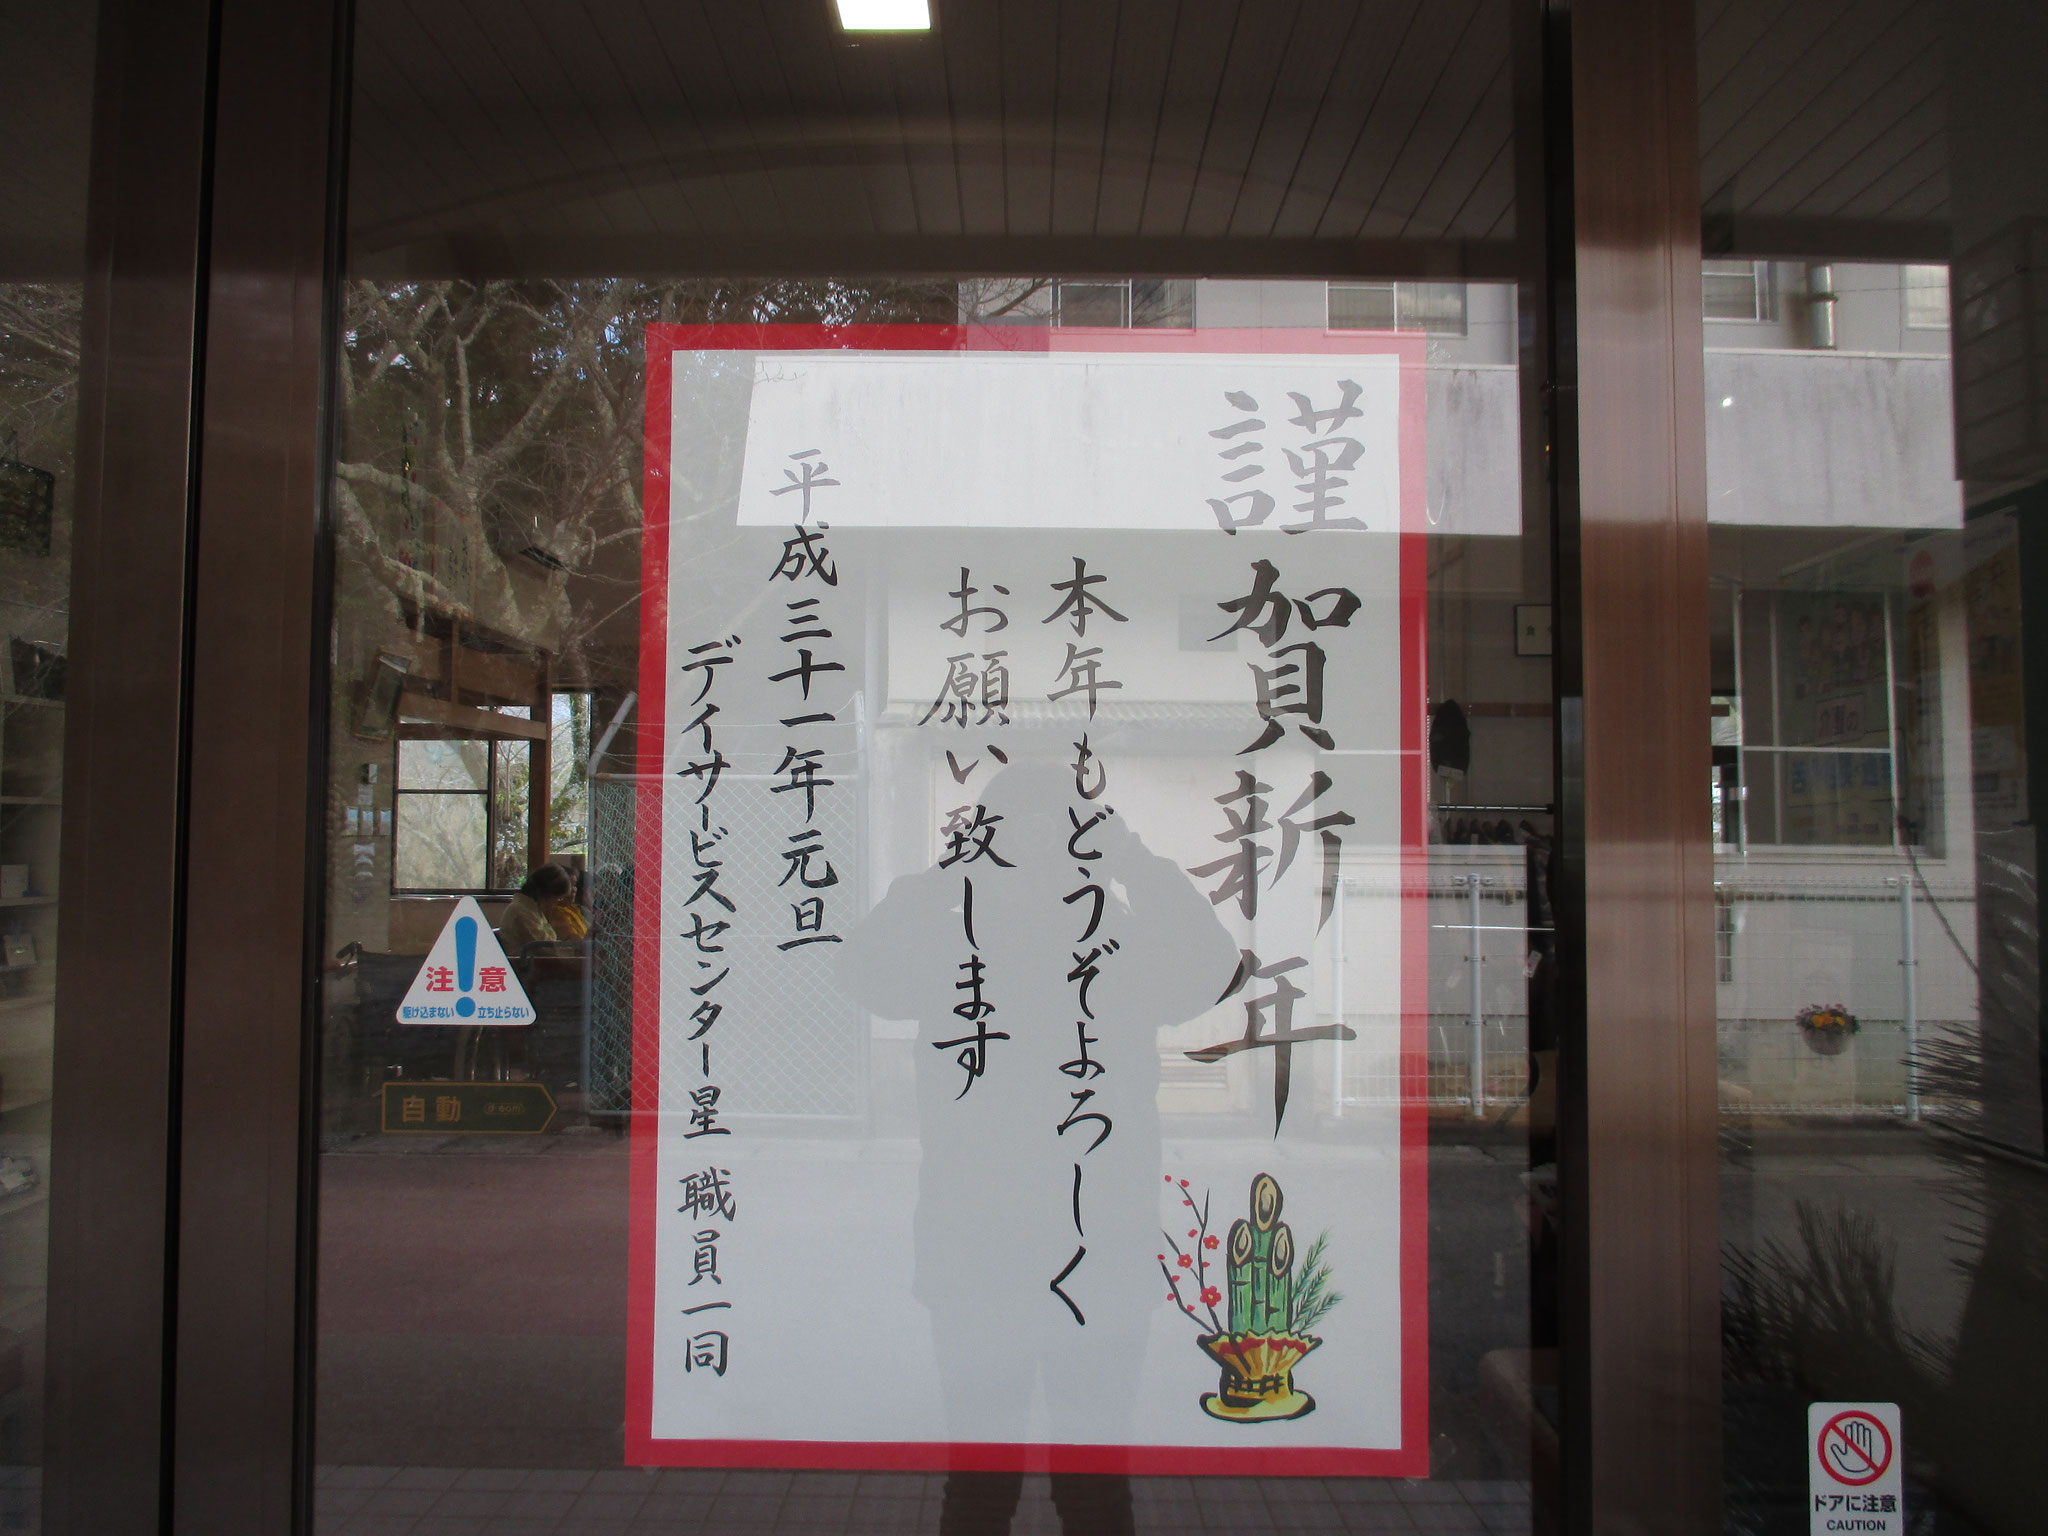 謹賀新年
本年もどうぞよろしく
お願い致します
平成三十一年元旦
デイサービスセンター星 職員一同
注意
駆け込まない 立ち止らない
自動
ドアに注意
CAUTION